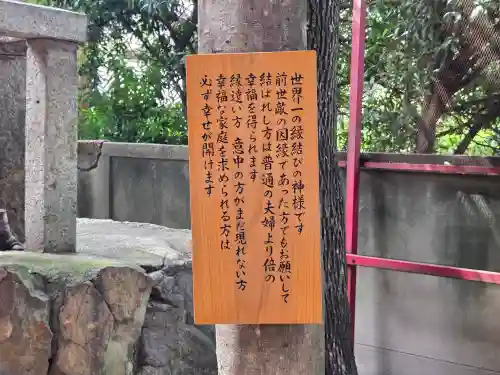 世界一の縁結びの神様です
前世敵の因縁であった方でもお願いして
結ばれし方は普通の夫婦より倍の
幸福を得られます
縁遠い方、意中の方がまだ現れない方
幸福な家庭を求められる方は
必ず幸せが開けます